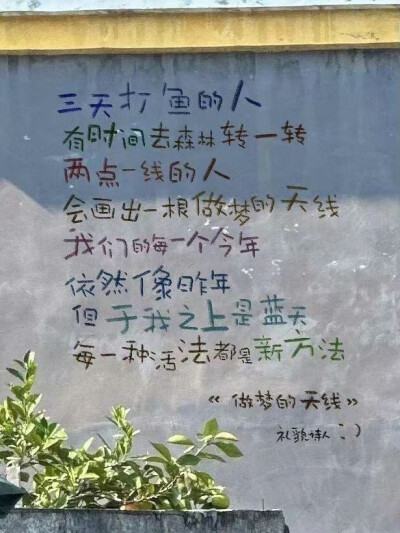 三天打鱼的人
有时间去森林转一转
两点一线的人
会画出一根做梦的天线
我们的每一个今年
依然像昨年
但于我之上是蓝天
每一种活法都是新方法
《做梦的天线》
礼貌诗人 :)